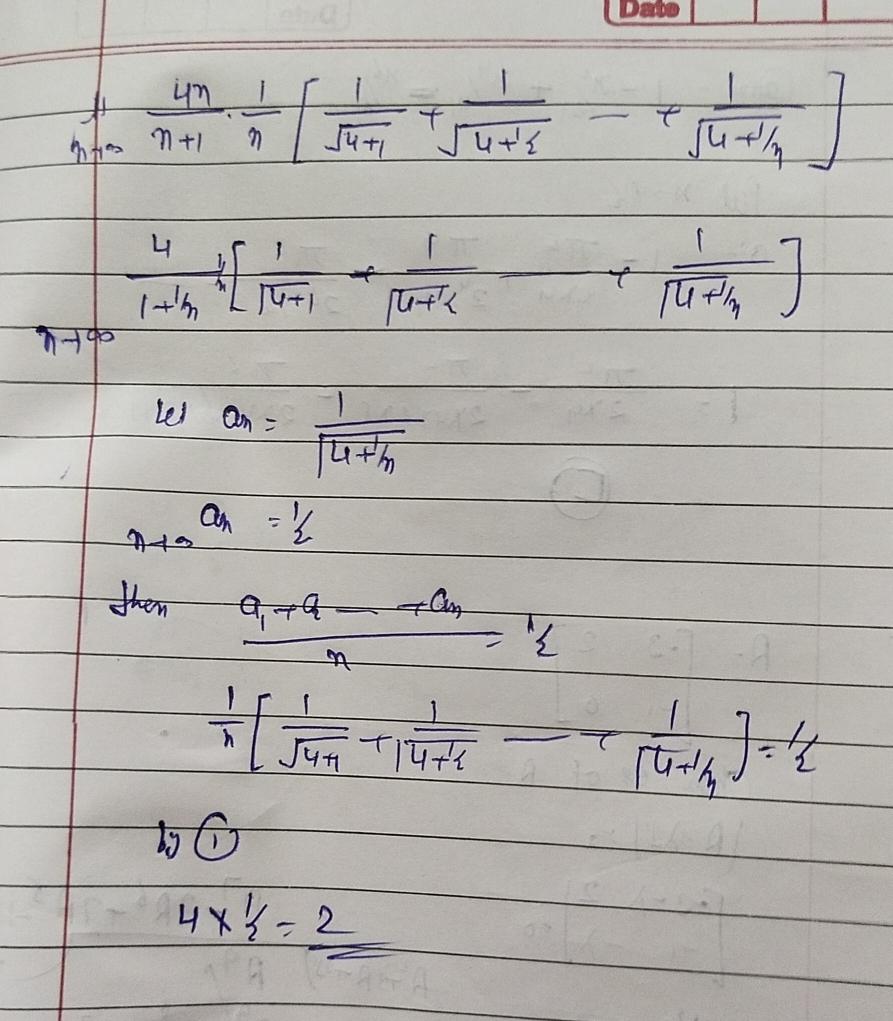 Date
lt n→∞ 4n/n+1 · 1/n [ 1/√4+1 + 1/√4+1/2 — + 1/√4+1/n ]
n→∞ 4/1+1/n 1/n [ 1/√4+1 + 1/√4+1/2 — + 1/√4+1/n ]
let an = 1/√4+1/n
n→∞ an = 1/2
then a1+a2 — +an/n = 1/2
1/n [ 1/√4+1 + 1/√4+1/2 — + 1/√4+1/n ] = 1/2
by ①
4 × 1/2 = 2